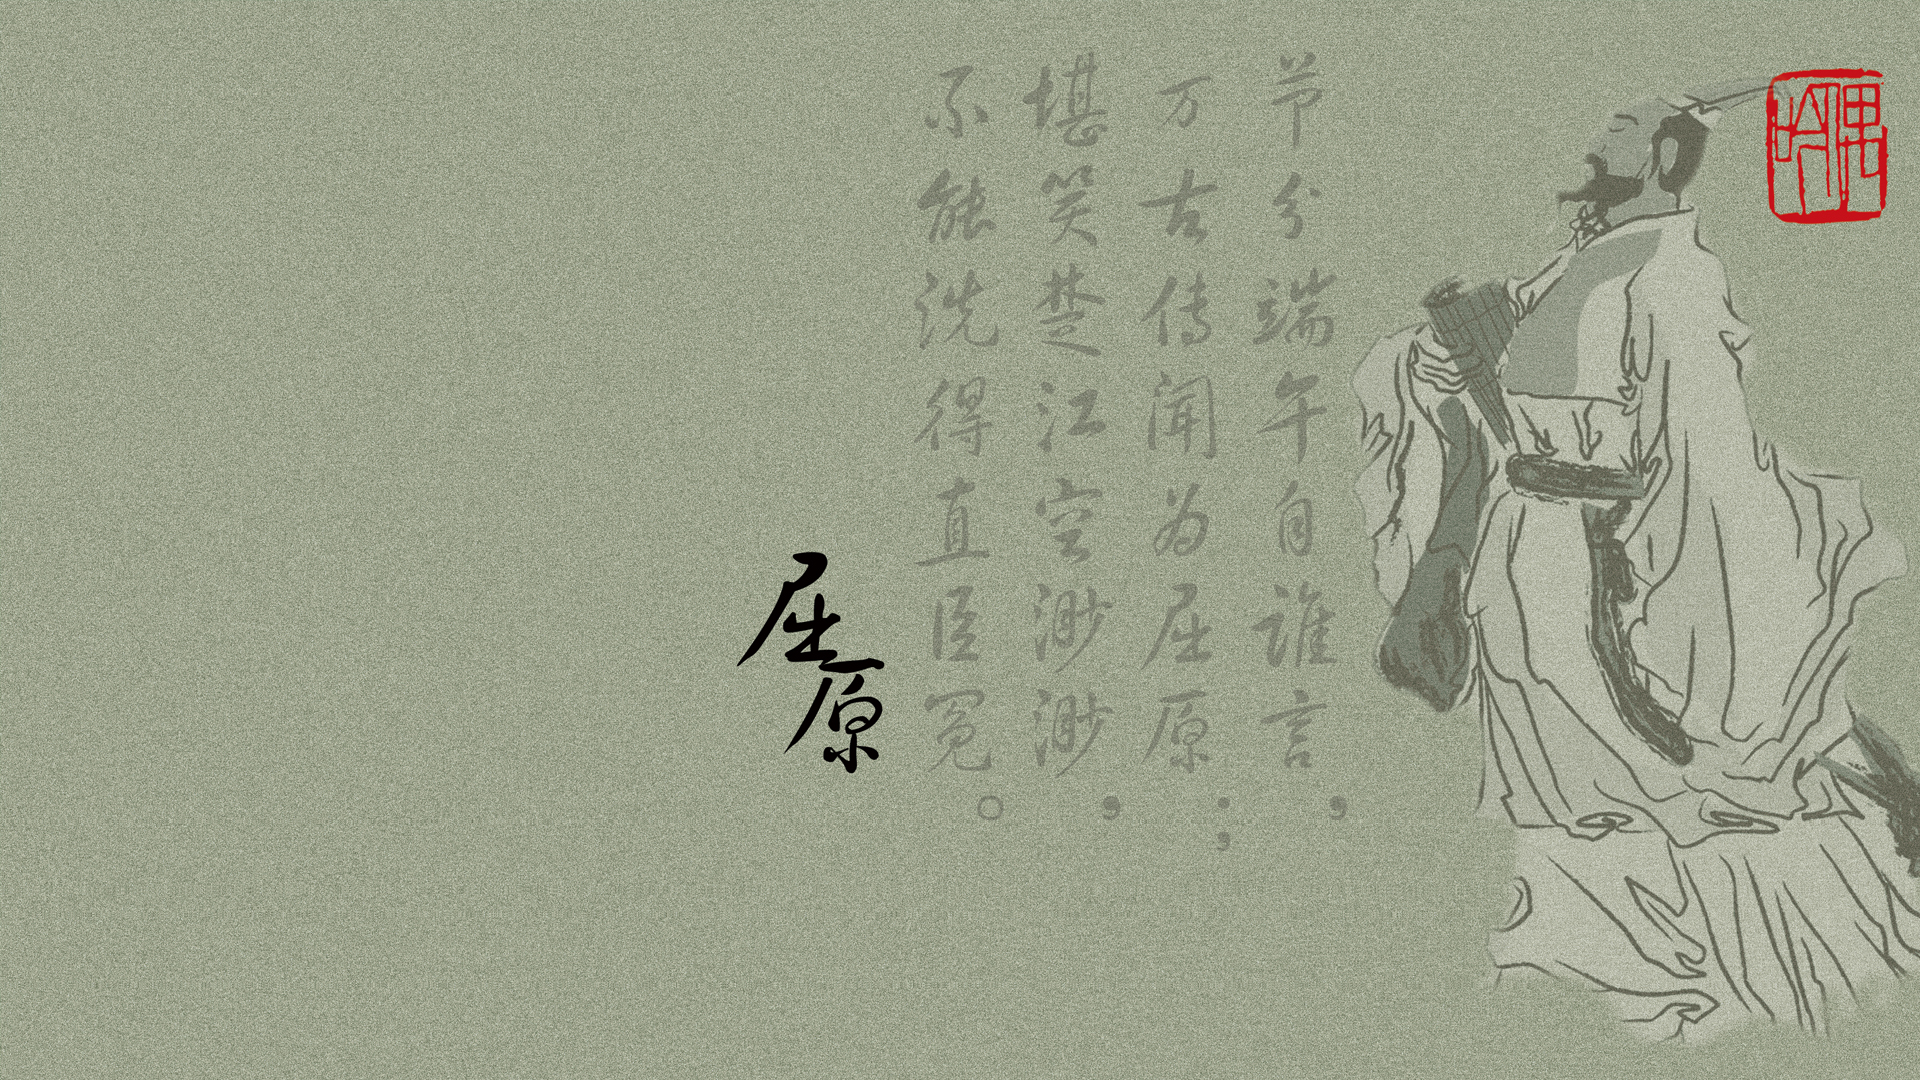 节分端午自谁言，
万古传闻为屈原；
堪笑楚江空渺渺，
不能洗得直臣冤。
屈原